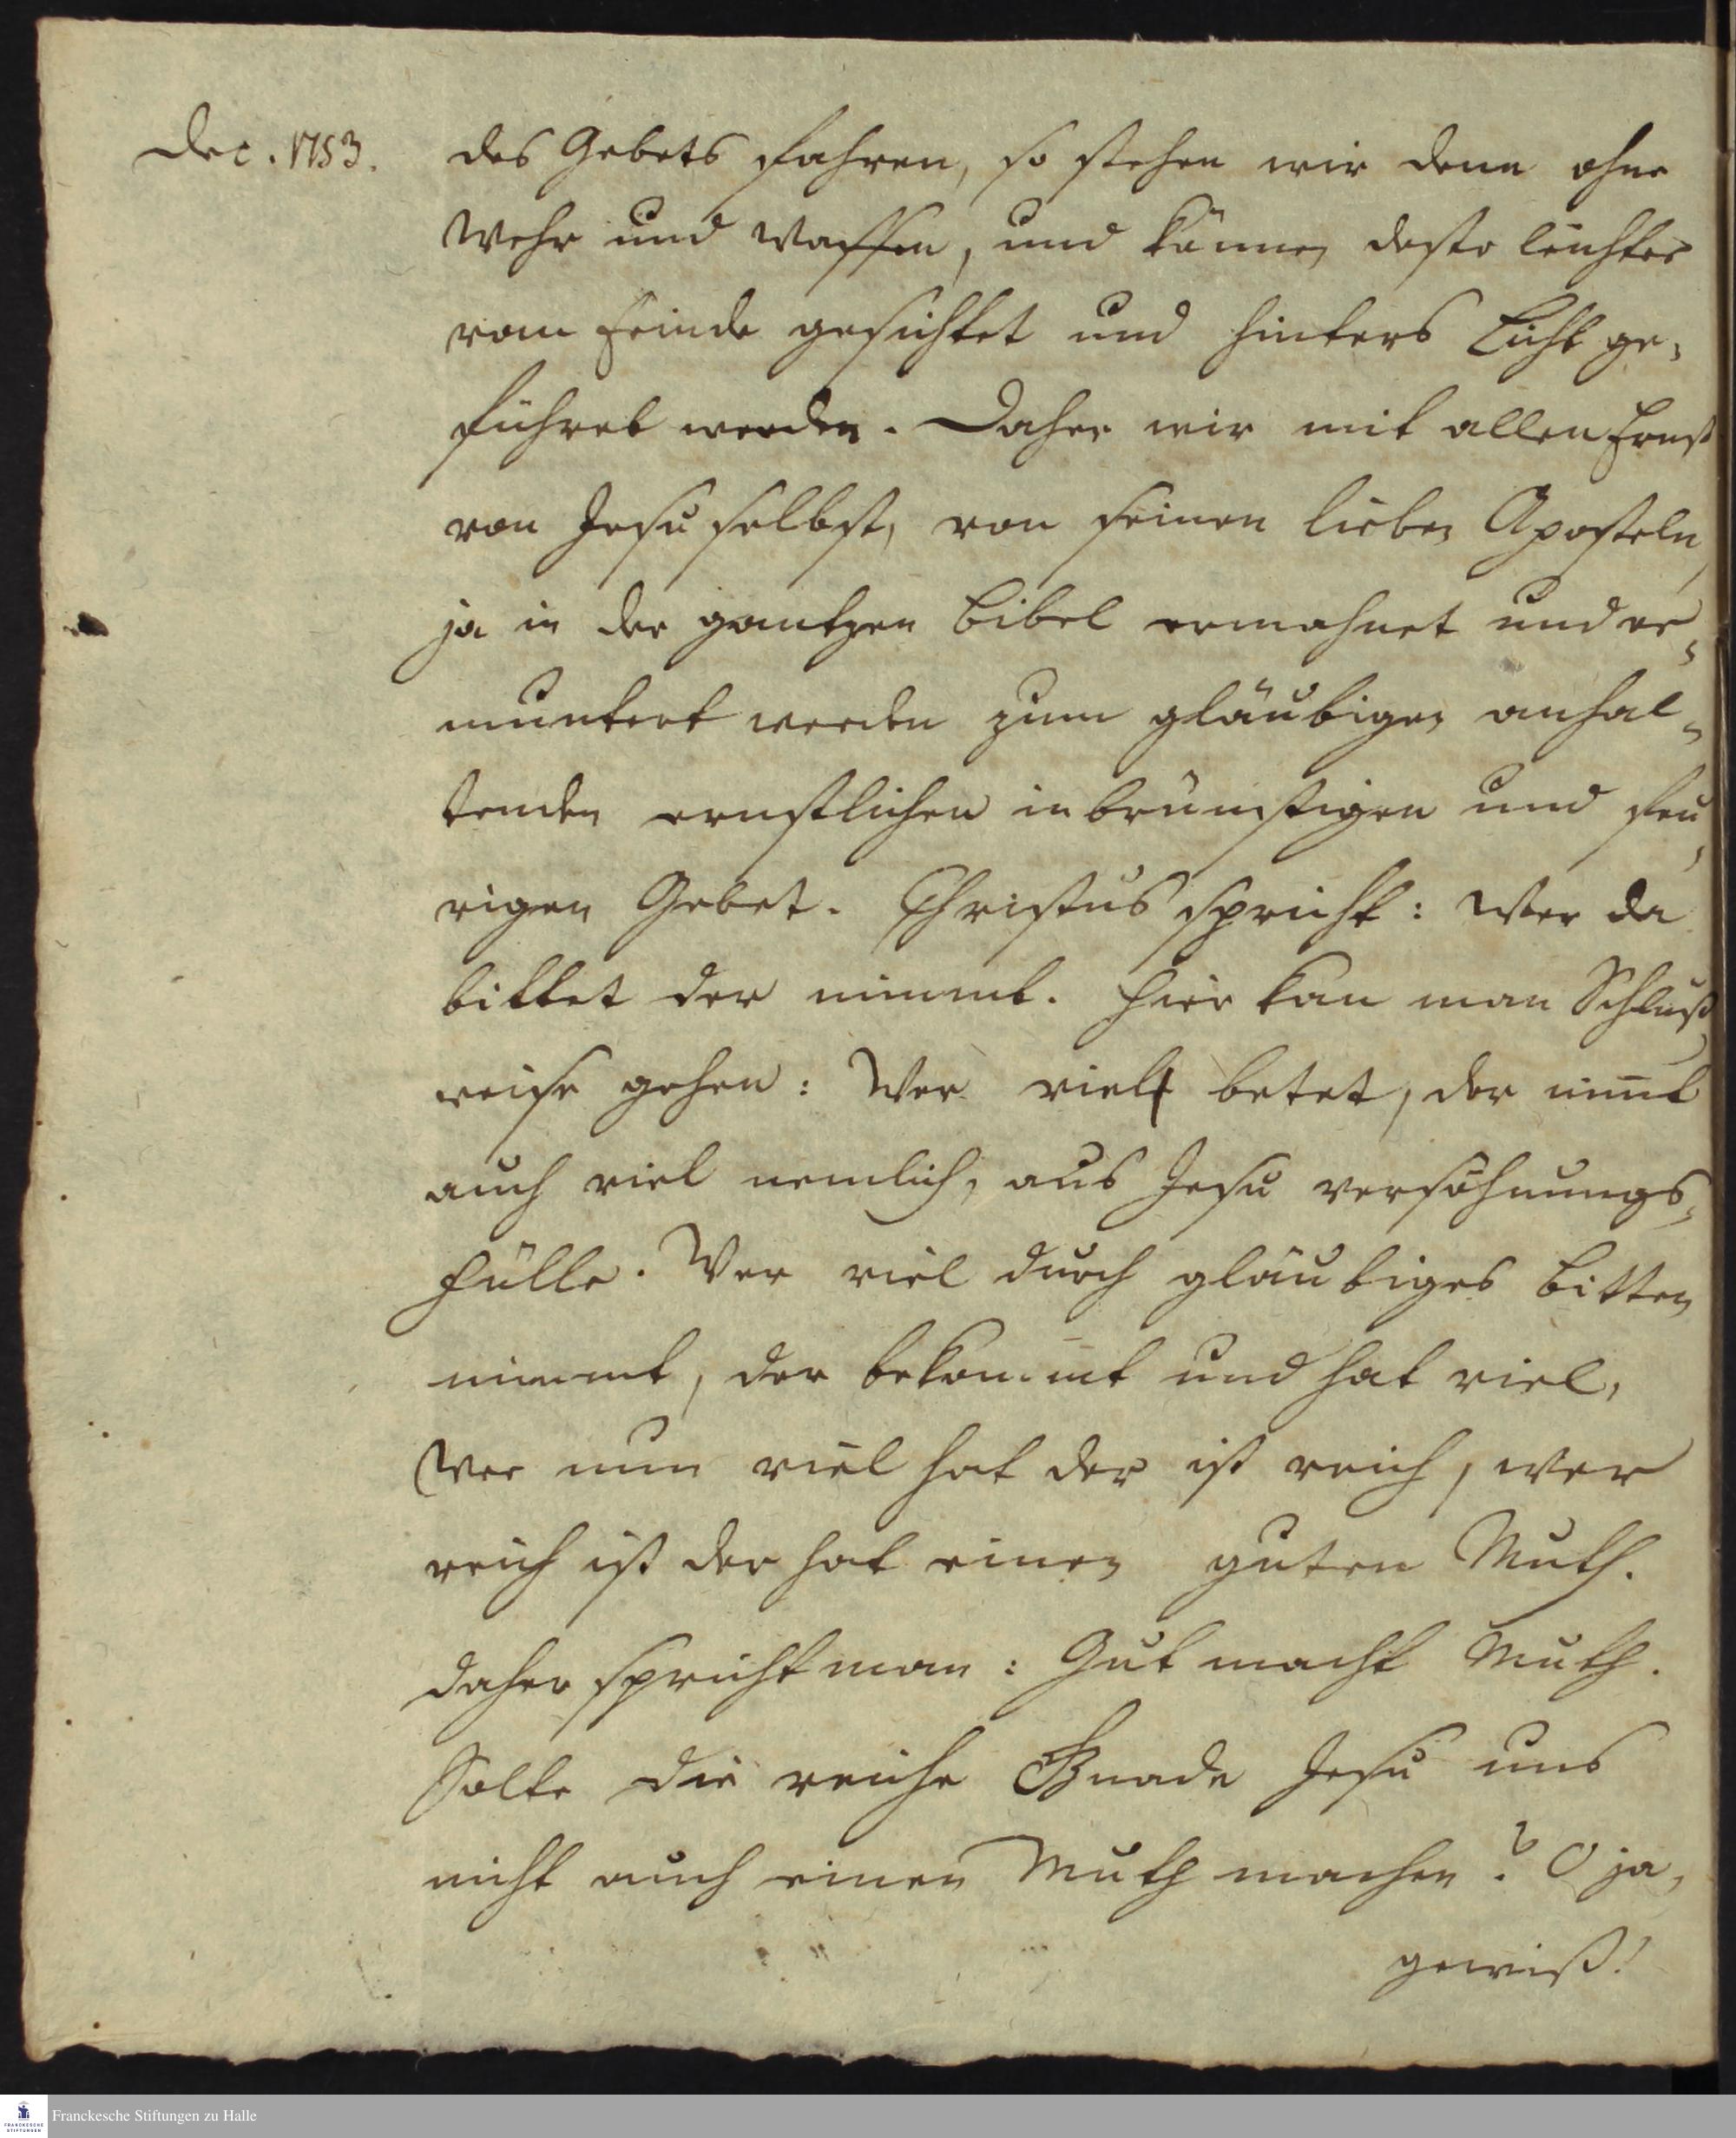 Dec. 1753.
des Gebets fahren, so stehen wir denn ohne
Wehr und Waffen, und können desto leichter
vom Feinde gesichtet und hinters Licht ge-
führet werden. Daher wir mit allen Ernst
von Jesu selbst, von seinen lieben Aposteln,
ja in der gantzen Bibel ermahnet und er-
muntert werden zum gläubigen anhal-
tenden ernstlichen inbrünstigen und feu-
rigen Gebet. Christus spricht: Wer da
bittet der nimmt. Hier kan man Schluß-
weise gehen: Wer viel betet, der nim̄t
auch viel nemlich, aus Jesu versöhnungs-
Fülle. Wer viel durch gläubiges Bitten
nimmt, der bekommt und hat viel,
Wer nun viel hat der ist reich, wer
reich ist der hat einen guten Muth.
daher spricht man: Gut macht Muth.
Solte die reiche Gnade Jesu uns
nicht auch einen Muth machen? O ja,
gewiß!
FRANCKESCHE STIFTUNGEN
Franckesche Stiftungen zu Halle